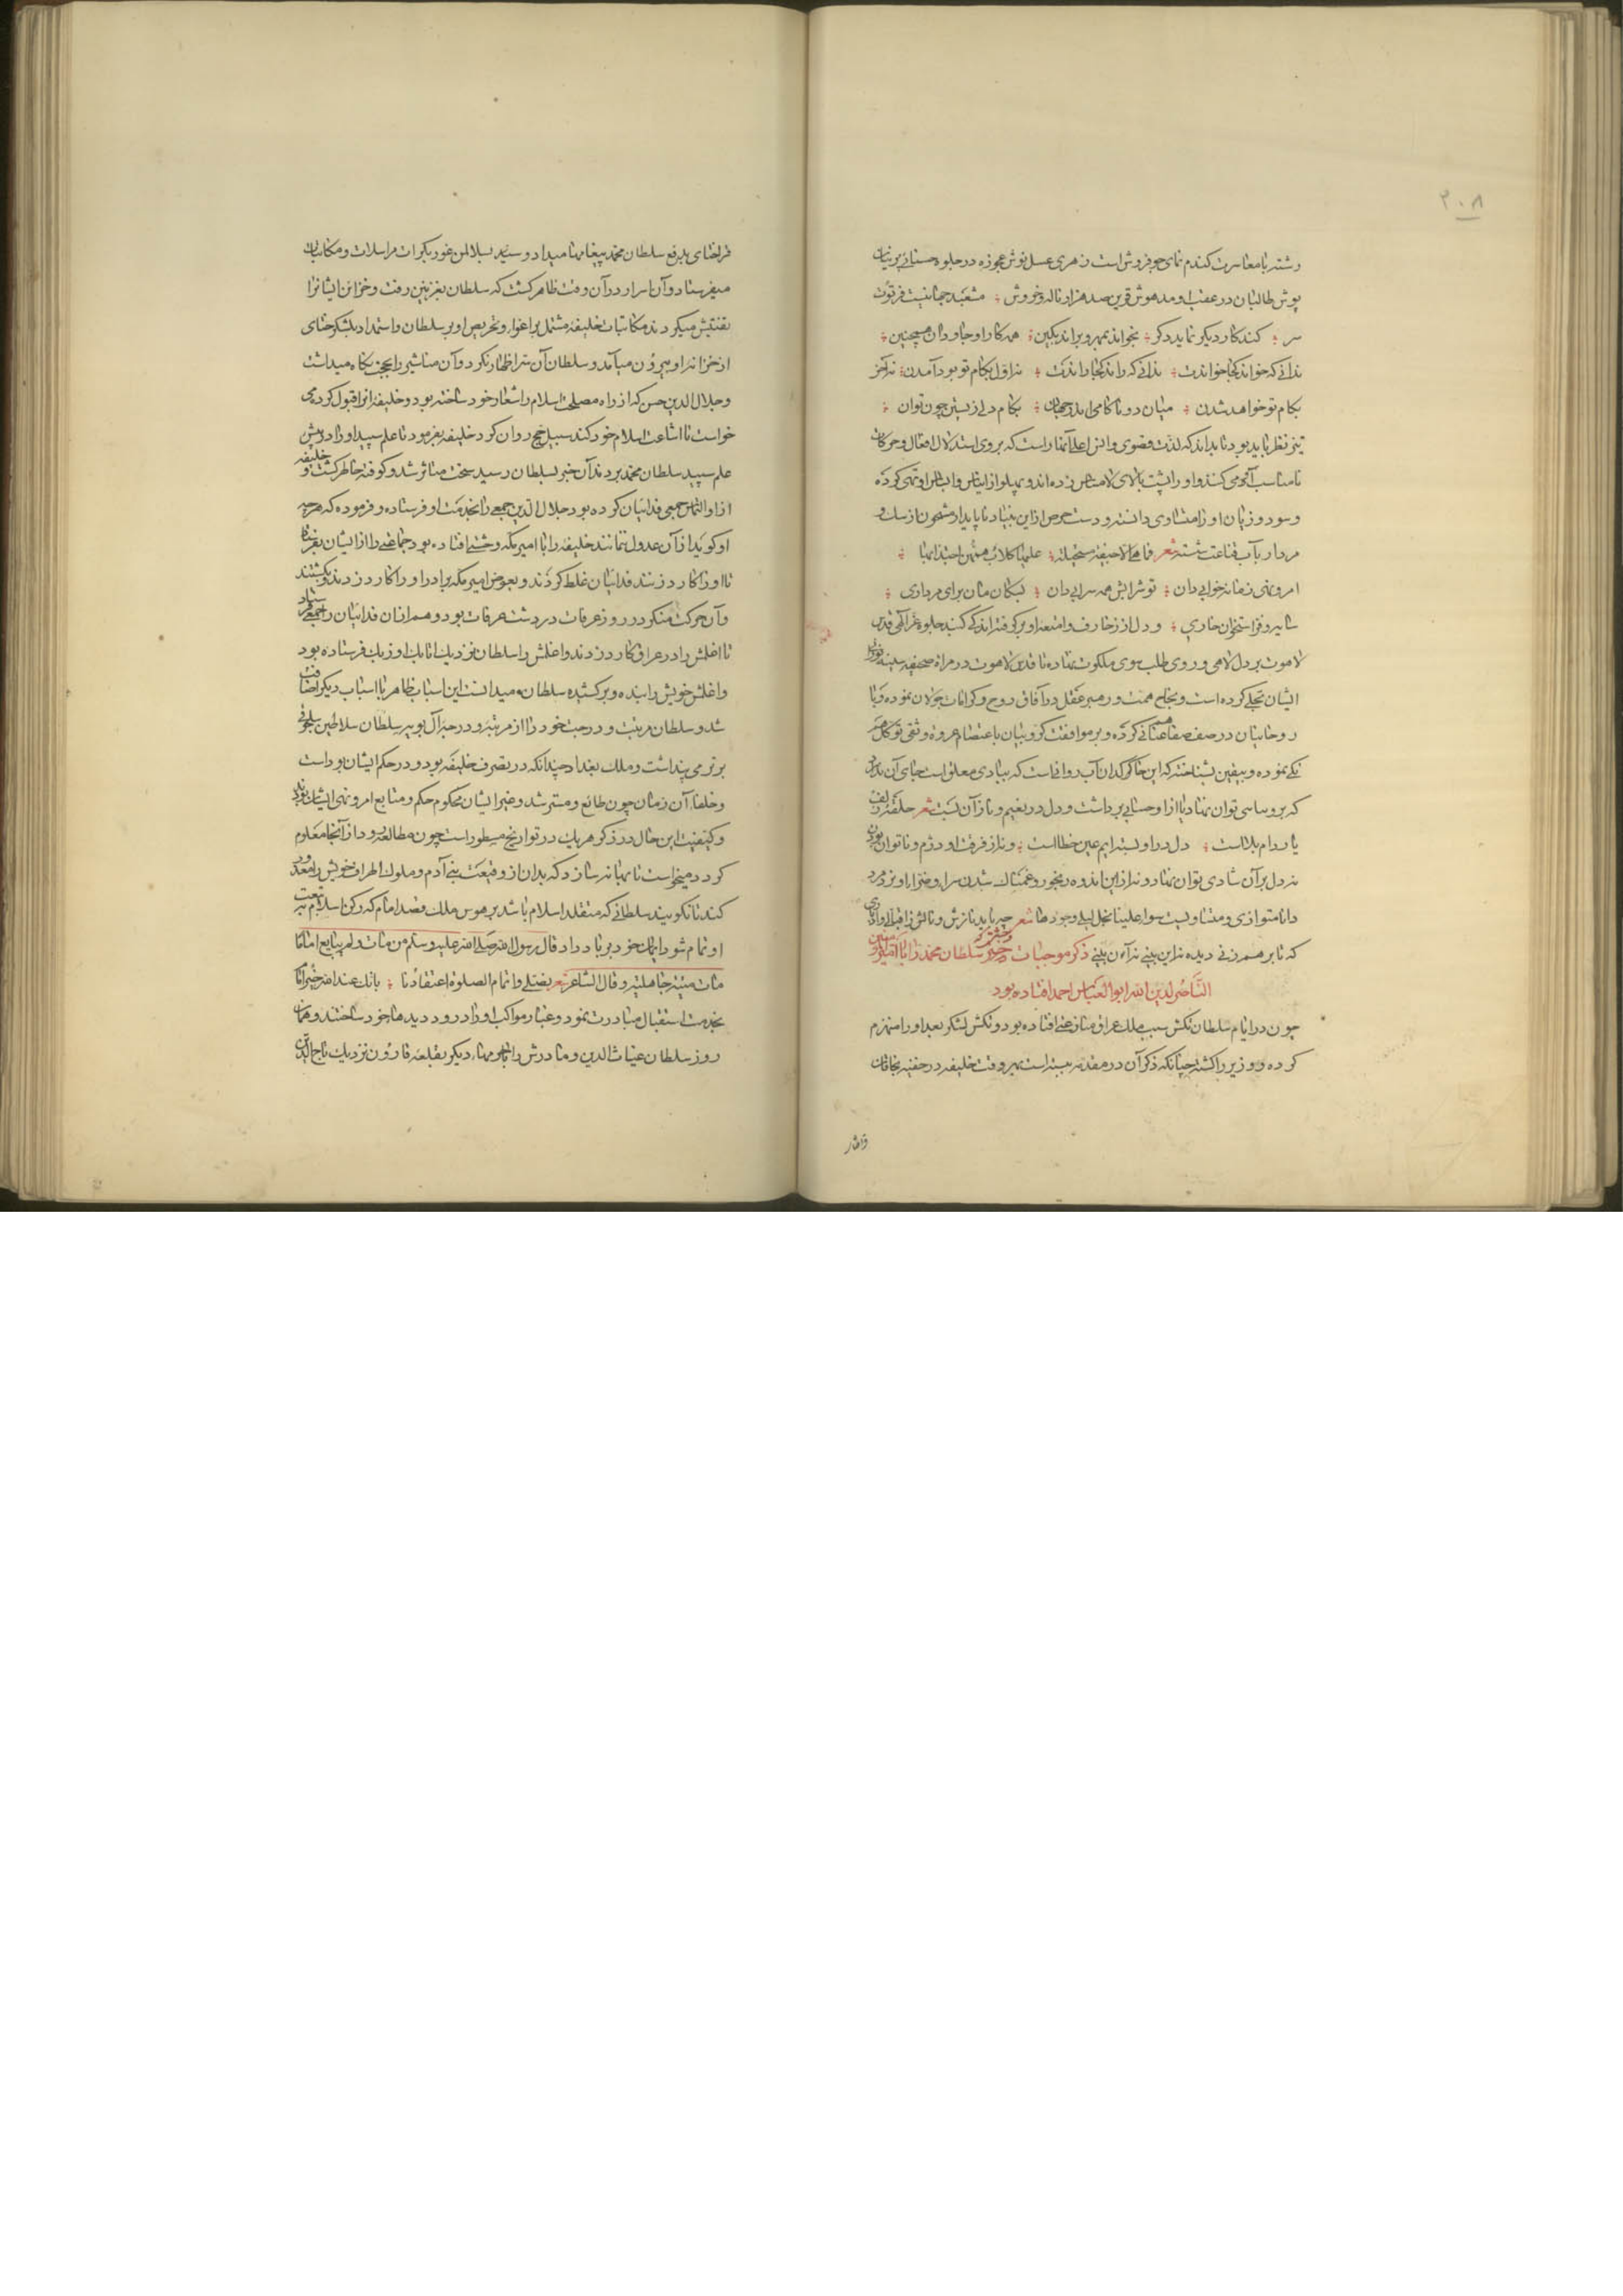 ۳۰۸
رشته با معاشرت کندم نمای جو فروش است زهری عسل نوش عجوزه در جلوه حسنائی پرنیان
پوش طالبان در عقب او مدهوش قرین صد هزار ناله و خروش مشعبد جهانیست فرتوت
سر کند کار دیگر نماید دگر بخواند بمهر و براند بکین همه کار او جاودان همچنین
ندانی که خواند کجا خواندت ندانی که راند کجا راندت نه اول بکام تو بود آمدن نه آخر
بکام تو خواهد شدن میان دو ناکامی اندر جهان بکام دل زیستن چون توان
تیز نظر باید بود تا بداند که لذت
نامناسب آدمی کنند و او را پشت پای
و سود و زیان او را متساوی دانسته و دست حرص از این بنیاد ناپایدار
مردار بآب قناعت شسته شعر فما هی الا جیفة مستحیلة علیها کلاب همهن اجتذابها
امرونهی زمانه خوابی دان تو شرابش همه سرابی دان سکان مان برای مرداری
سایه و فر استخوان خواری و دل از زخارف و امتعه او برگرفته
لاهوت بر دل لاهی و روی طلب سوی ملکوت نهاده تا قدس لاهوت در مرآة صحیفه سینه
ایشان تجلی کرده است و بجناح همت و رهبر عقل در آفاق روح و کرامات جولان نموده و با
روحانیان در صف صفا عنانی کرده و بر موافقت کروبیان باعتصام عروه وثقی توکل
نموده و بیقین بشناخته که این خاکدان
که برو اساسی توان نهاد یا از او حسابی برداشت و دل در نعیم و ناز آن بست شعر حلقه زلف
یار دام بلاست دل در او بسته ایم عین خطاست و نه از فرقت او دژم و ناتوان بودن
نه دل بر آن شادی توان نهاد و نه از این اندوه رنجور و غمناک شدن سراء و ضراء او نزد مرد
دانا متوازی و متساویست سواء علینا بخل لیلی وجودها شعر چه باید نازش و نالش ز اقبالی و ادباری
که تا بر هم زنی دیده نه این بینی نه آن بینی ذکر موجبات وحشتی که سلطان محمد را با امیر المؤمنین
الناصر لدین الله ابو العباس احمد افتاده بود
چون در ایام سلطان تکش سبب ملک عراق منازعتی افتاده بود و تکش لشکر بغداد را منهزم
کرده و وزیر را کشته چنانکه ذکر آن در مقدمه مثبت است بهر وقت خلیفه در خفیه بخانان
قراختای بدفع سلطان محمد پیغامها میداد و سوی سلاطین غور بکرات مراسلات و مکاتبات
میفرستاد و آن اسرار در آن وقت ظاهر گشت که سلطان بغزنین رفت و خزاین ایشانرا
تفتیش میکردند مکاتبات خلیفه مشتمل بر اغراء و تحریص او بر سلطان و استمداد بلشکر ختای
از خزانه او بیرون میآمد و سلطان آن سر اظهار نکرد و آن مناشیر را بحجت نگاه میداشت
و جلال الدین حسن که از راه مصلحت اسلام را شعار خود ساخته بود و خلیفه انرا قبول کرده می
خواست تا اشاعت اسلام خود کند سبیل حج روان کرد خلیفه بفرمود تا علم سپید او را در پیش
علم سپید سلطان محمد بردند آن خبر بسلطان رسید سخت متأثر شد و کوفته خاطر گشت و خلیفه
از او التماس جمعی فدائیان کرده بود جلال الدین جمعی را بخدمت او فرستاده و فرموده که هرچه
او کوید از آن عدول ننمایند خلیفه را با امیر مکه وحشتی افتاده بود جماعتی را از ایشان بفرستاد
تا او را کارد زنند فدائیان غلط کردند و بعوض امیر مکه برادر او را کارد زدند و بکشتند
و آن حرکت منکر در روز عرفات در دشت عرفات بود و هم از آن فدائیان جمعی را فرستاد
تا اغلمش را در عراق کارد زدند و اغلمش را سلطان نزدیک اتابک اوزبک فرستاده بود
و اغلمش خویش را بنده و برکشیده سلطان میدانست این اسباب ظاهر با اسباب دیگر اضافت
شد و سلطان مرتبت و درجت خود را از مرتبه و درجه آل بویه و سلاطین سلجوقی
برتر می پنداشت و ملک بغداد چندانکه در تصرف خلیفه بود و در حکم ایشان بوداست
و خلفاء آن زمان چون طائع و مسترشد و غیر ایشان محکوم حکم و متابع امر و نهی ایشان بودند
و کیفیت این حال در ذکر هر یک در تواریخ مسطور است چون مطالعه رود از آنجا معلوم
گردد میخواست تا بهانه سازد که بدان از وقیعت بنی آدم و ملوک اطراف خویش را معذور
کند تا نگویند سلطانی که متقلد اسلام باشد بر هوس ملک قصد امام که رکن اسلام ببیعت
او تمام شود ایمان خود بر باد داد قال رسول الله صلی الله علیه و سلم من مات و لم یبایع اماما
مات میتة جاهلیة و قال الشاعر شعر بفضلی و اتمام الصلوة اعتقادنا بانک عند الله خیر امام
بخدمت استقبال مبادرت نمود و غبار مواکب او را درود دیدها خود ساختند و همان
روز سلطان غیاث الدین و مادرش را با حرمهاء دیگر بقلعه قارون نزدیک تاج الدین
قراختای